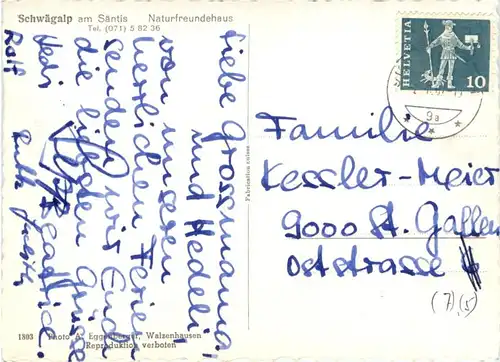 Schwägalp am Säntis Naturfreundehaus
Tel. (071) 5 82 36
Liebe Grossmama!
und Hedeli!
von unseren
herrlichen Ferien
senden wir Euch
die lieben Grüsse
Hedi Beatrice.
Rolf Ruth
HELVETIA
10
9a
Familie
Kessler-Meier
9000 St. Gallen
Oststrasse
(7) (5)
Fabrication suisse
1803 Photo A. Eggenberger, Walzenhausen
Reproduktion verboten